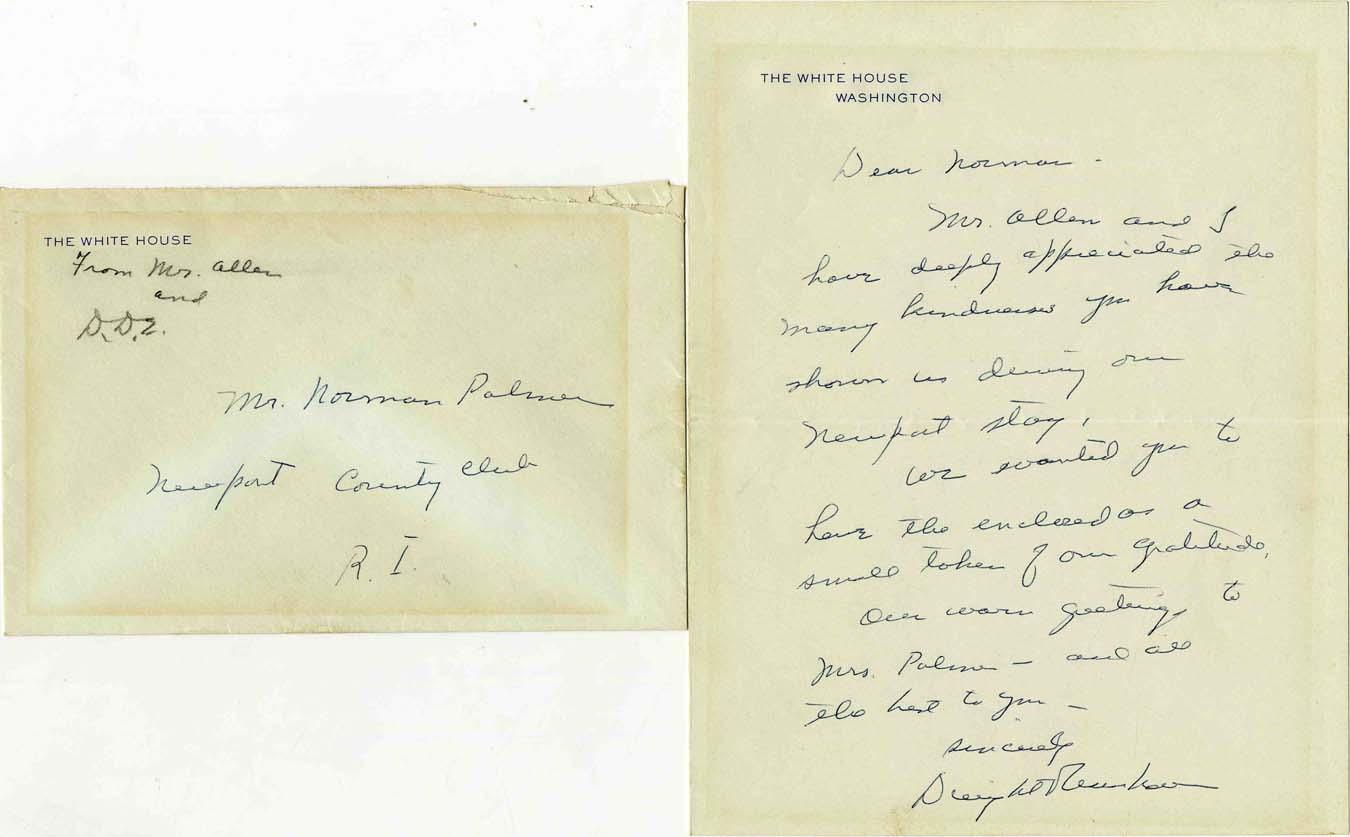 THE WHITE HOUSE
From Mr. Allen
and
D.D.E.
Mr. Norman Palmer
Newport County Club
R. I.
THE WHITE HOUSE
WASHINGTON
Dear Norman -
Mr. Allen and I
have deeply appreciated the
many kindnesses you have
shown us during our
Newport stay.
We wanted you to
have the enclosed as a
small token of our gratitude.
Our warm greetings to
Mrs. Palmer - and all
the best to you -
Sincerely
Dwight Eisenhower